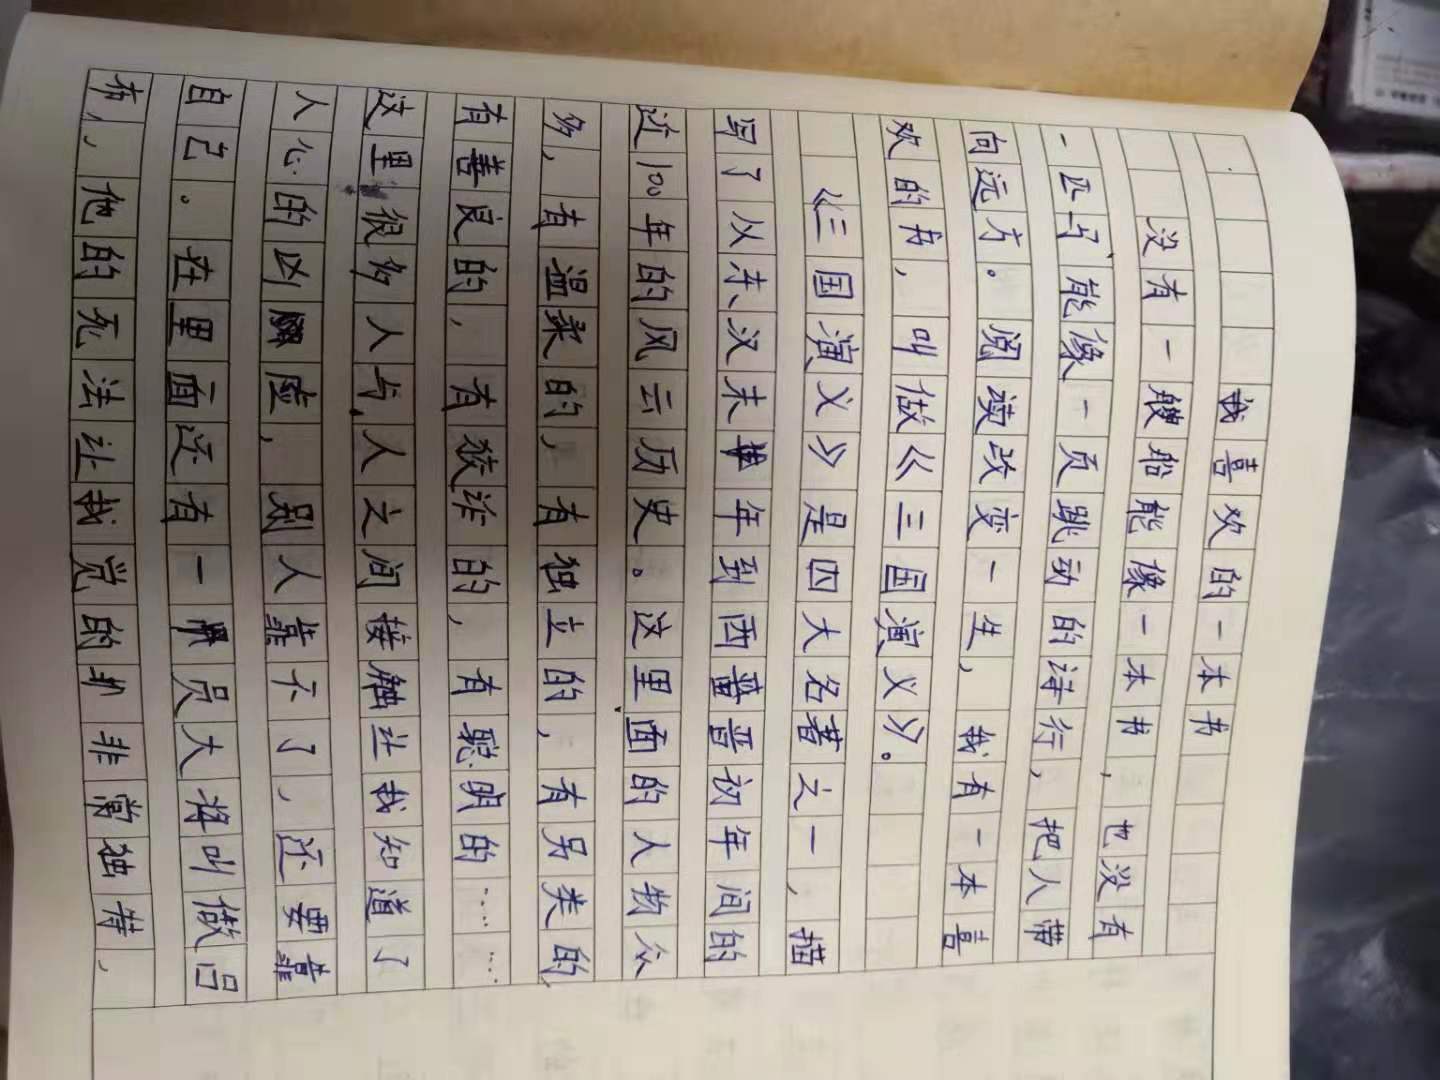 我喜欢的一本书
没有一艘船能像一本书，也没有
一匹马能像一页跳动的诗行，把人带
向远方。阅读改变一生，我有一本喜
欢的书，叫做《三国演义》。
《三国演义》是四大名著之一，描
写了从东汉末年到西晋初年间的
近100年的风云历史。这里面的人物众
多，有温柔的，有独立的，有另类的，
有善良的，有狡诈的，有聪明的……
这里很多人与人之间接触让我知道了
人心的凶险，别人靠不了，还要靠
自己。在里面还有一员大将叫做吕
布，他的死法让我觉的非常独特，